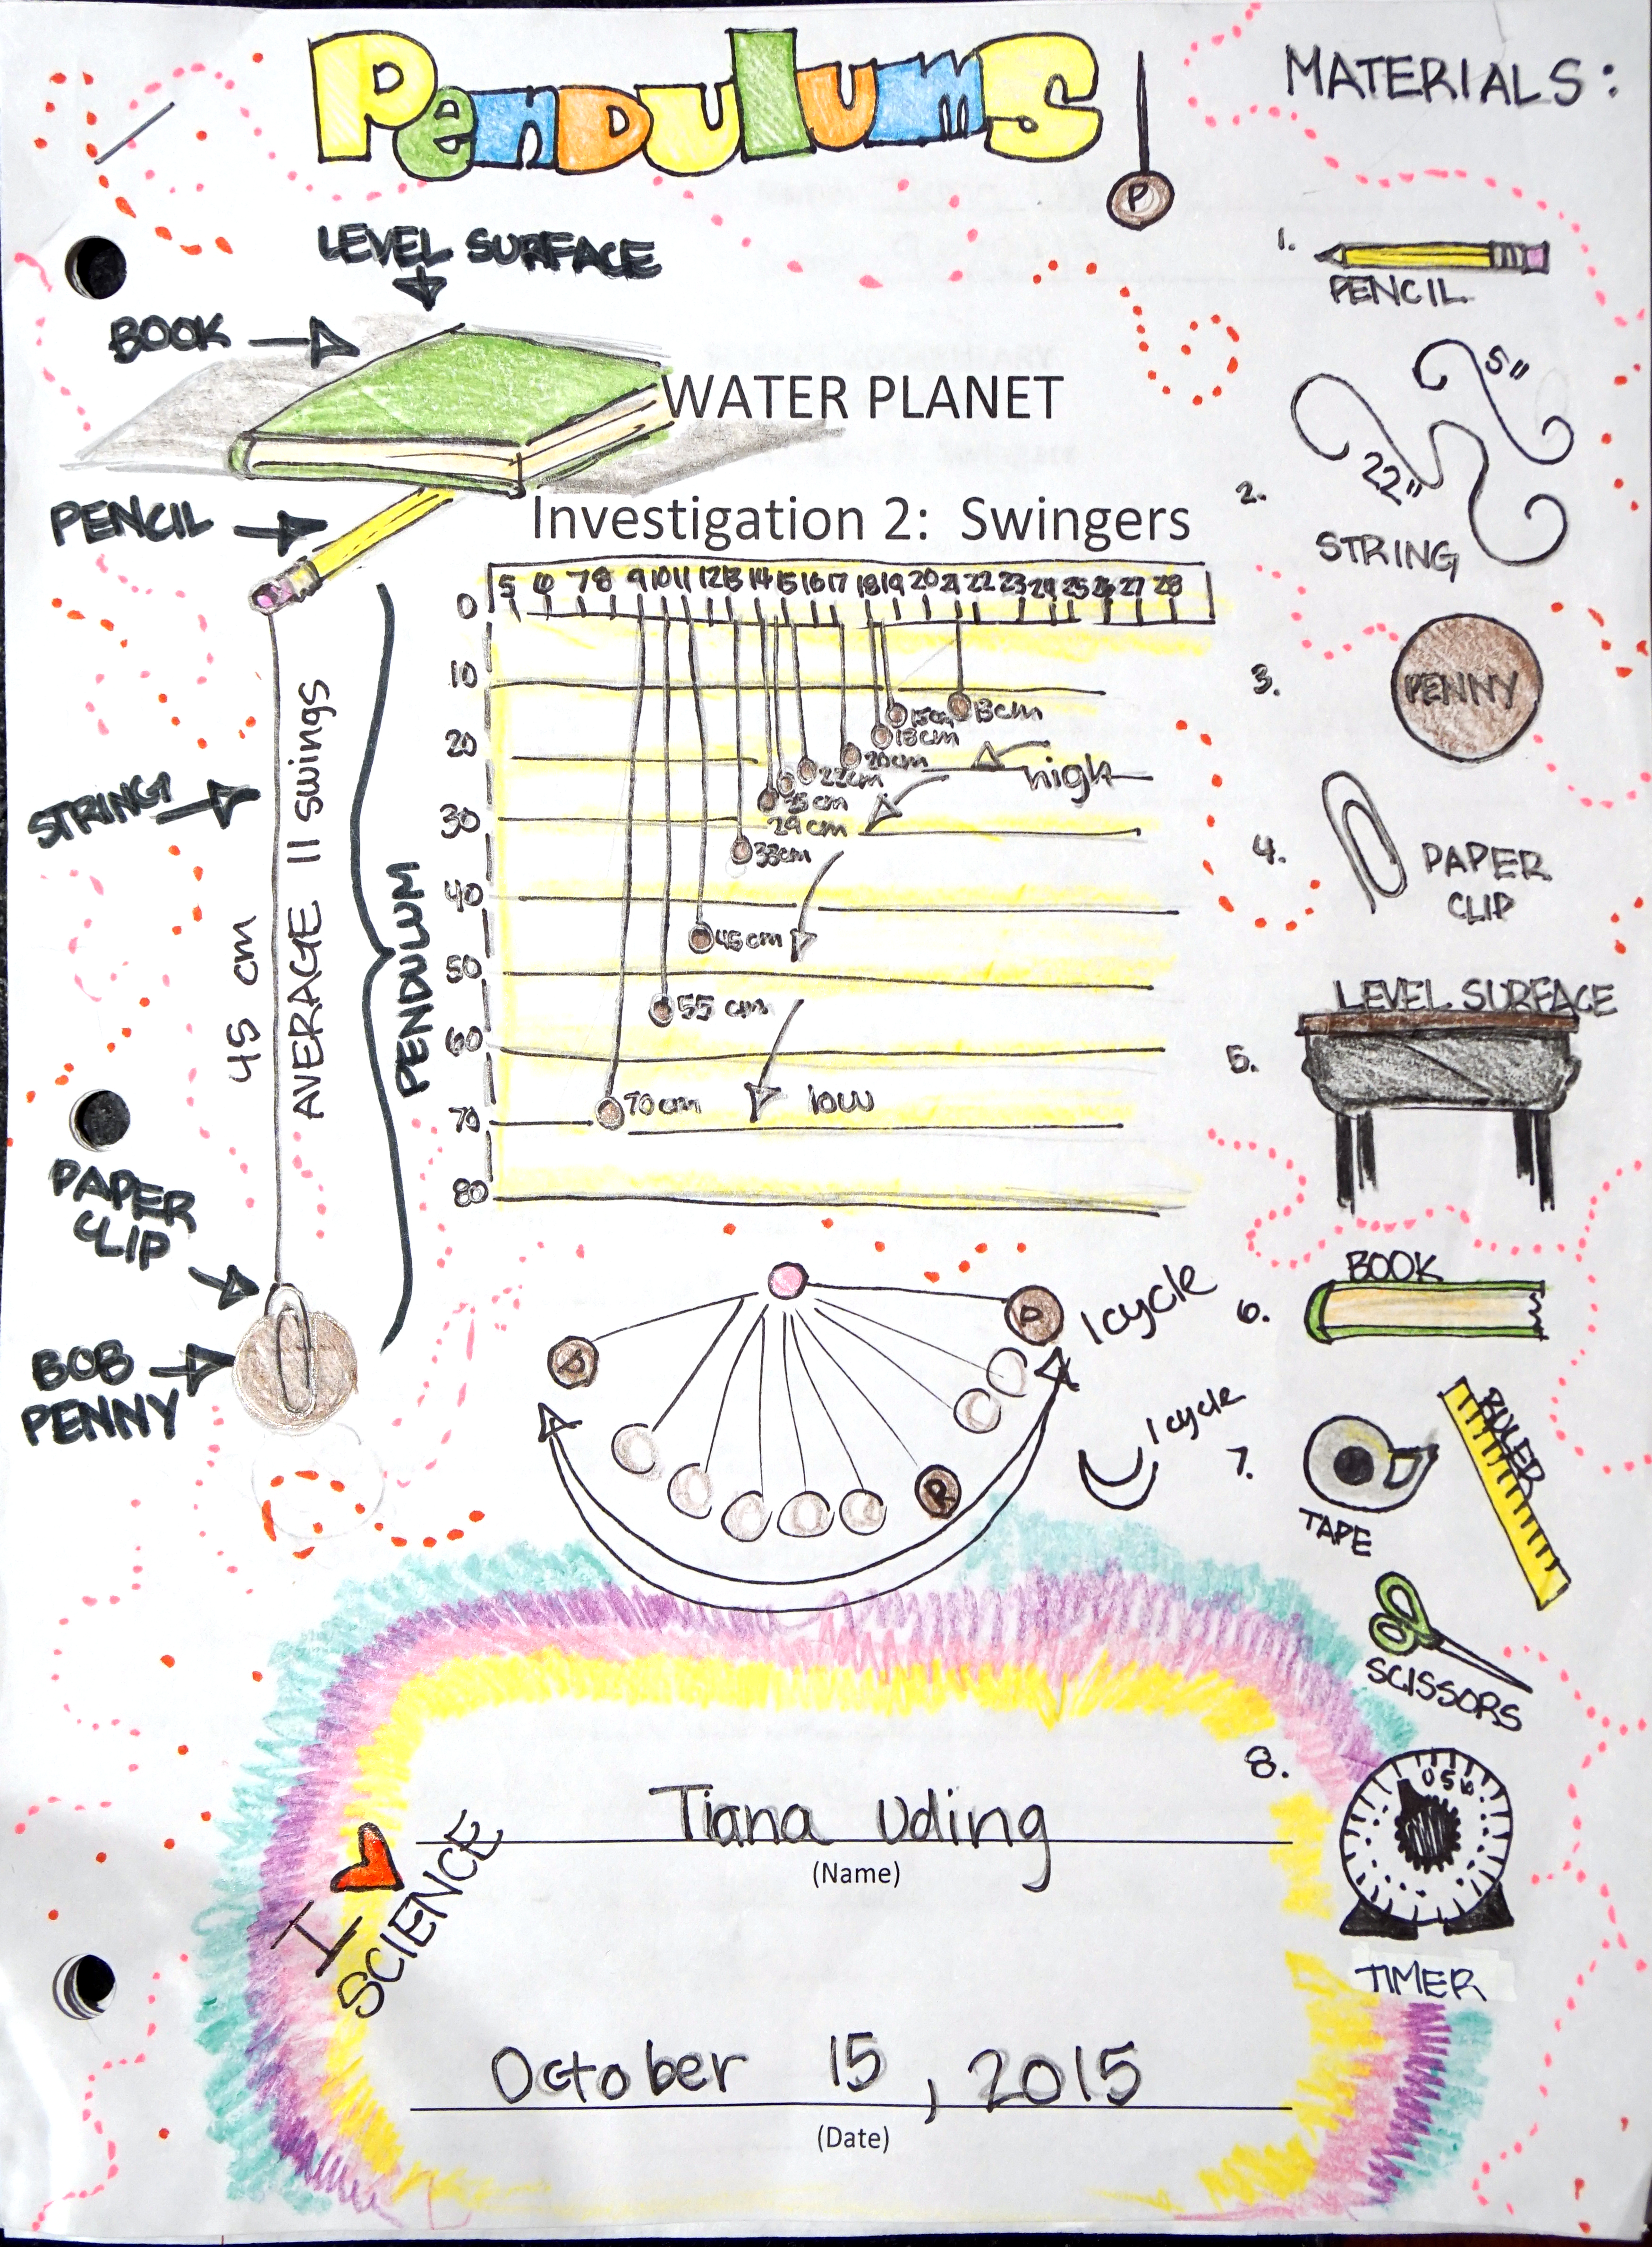 PENDULUMS
P
MATERIALS:
LEVEL SURFACE
BOOK
WATER PLANET
PENCIL
Investigation 2: Swingers
5 6 7 8 9 10 11 12 13 14 15 16 17 18 19 20 21 22 23 24 25 26 27 28
0
10
20
30
40
50
60
70
80
15cm
13cm
18cm
20cm
22cm
29cm
33cm
45cm
55 cm
70cm
high
low
STRING
45 cm
AVERAGE 11 swings
PENDULUM
PAPER
CLIP
BOB
PENNY
P
P
P
1cycle
1cycle
1.
PENCIL
2.
5"
22"
STRING
3.
PENNY
4.
PAPER
CLIP
5.
LEVEL SURFACE
6.
BOOK
7.
TAPE
RULER
SCISSORS
8.
0 5 10
TIMER
I
SCIENCE
Tiana Uding
(Name)
October 15, 2015
(Date)